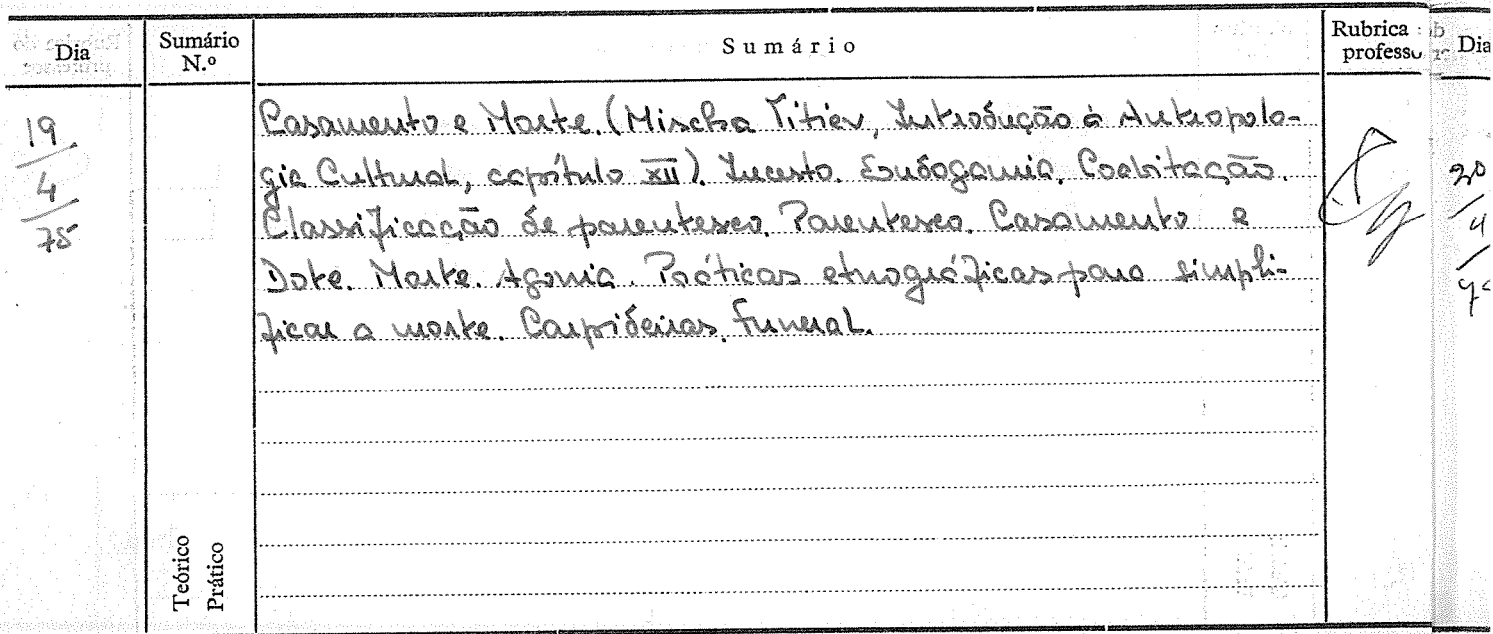 Dia
Sumário N.º
Sumário
Rubrica
professo
Dia
19
4
75
Casamento e Morte. (Mischa Titiev, Introdução à Antropolo-
gia Cultural, capítulo XII). Incesto. Endogamia. Coabitação.
Classificação de parentesco. Parentesco. Casamento e
Dote. Morte. Agonia. Práticas etnográficas para simpli-
ficar a morte. Carpideiras. Funeral.
20
4
Teórico
Prático